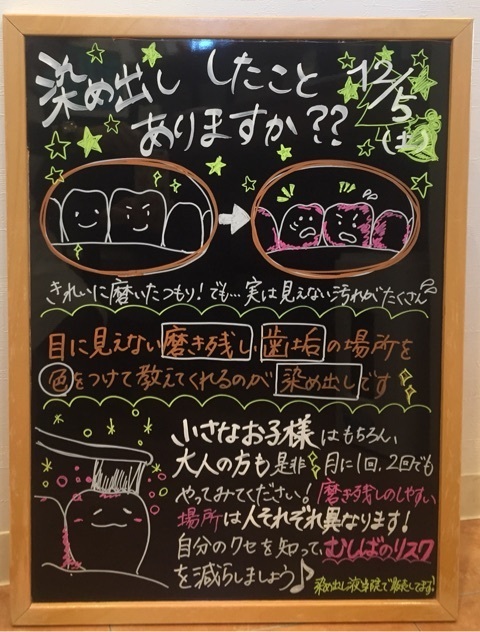 染め出し したこと
ありますか??
12/5
(土)
きれいに磨いたつもり!でも…実は見えない汚れがたくさん
目に見えない磨き残し、歯垢の場所を
色をつけて教えてくれるのが 染め出しです
小さなお子様はもちろん、
大人の方も是非 月に1回、2回でも
やってみてください。磨き残しのしやすい
場所は人それぞれ異なります!
自分のクセを知って、むしばのリスク
を減らしましょう♪
染め出し液